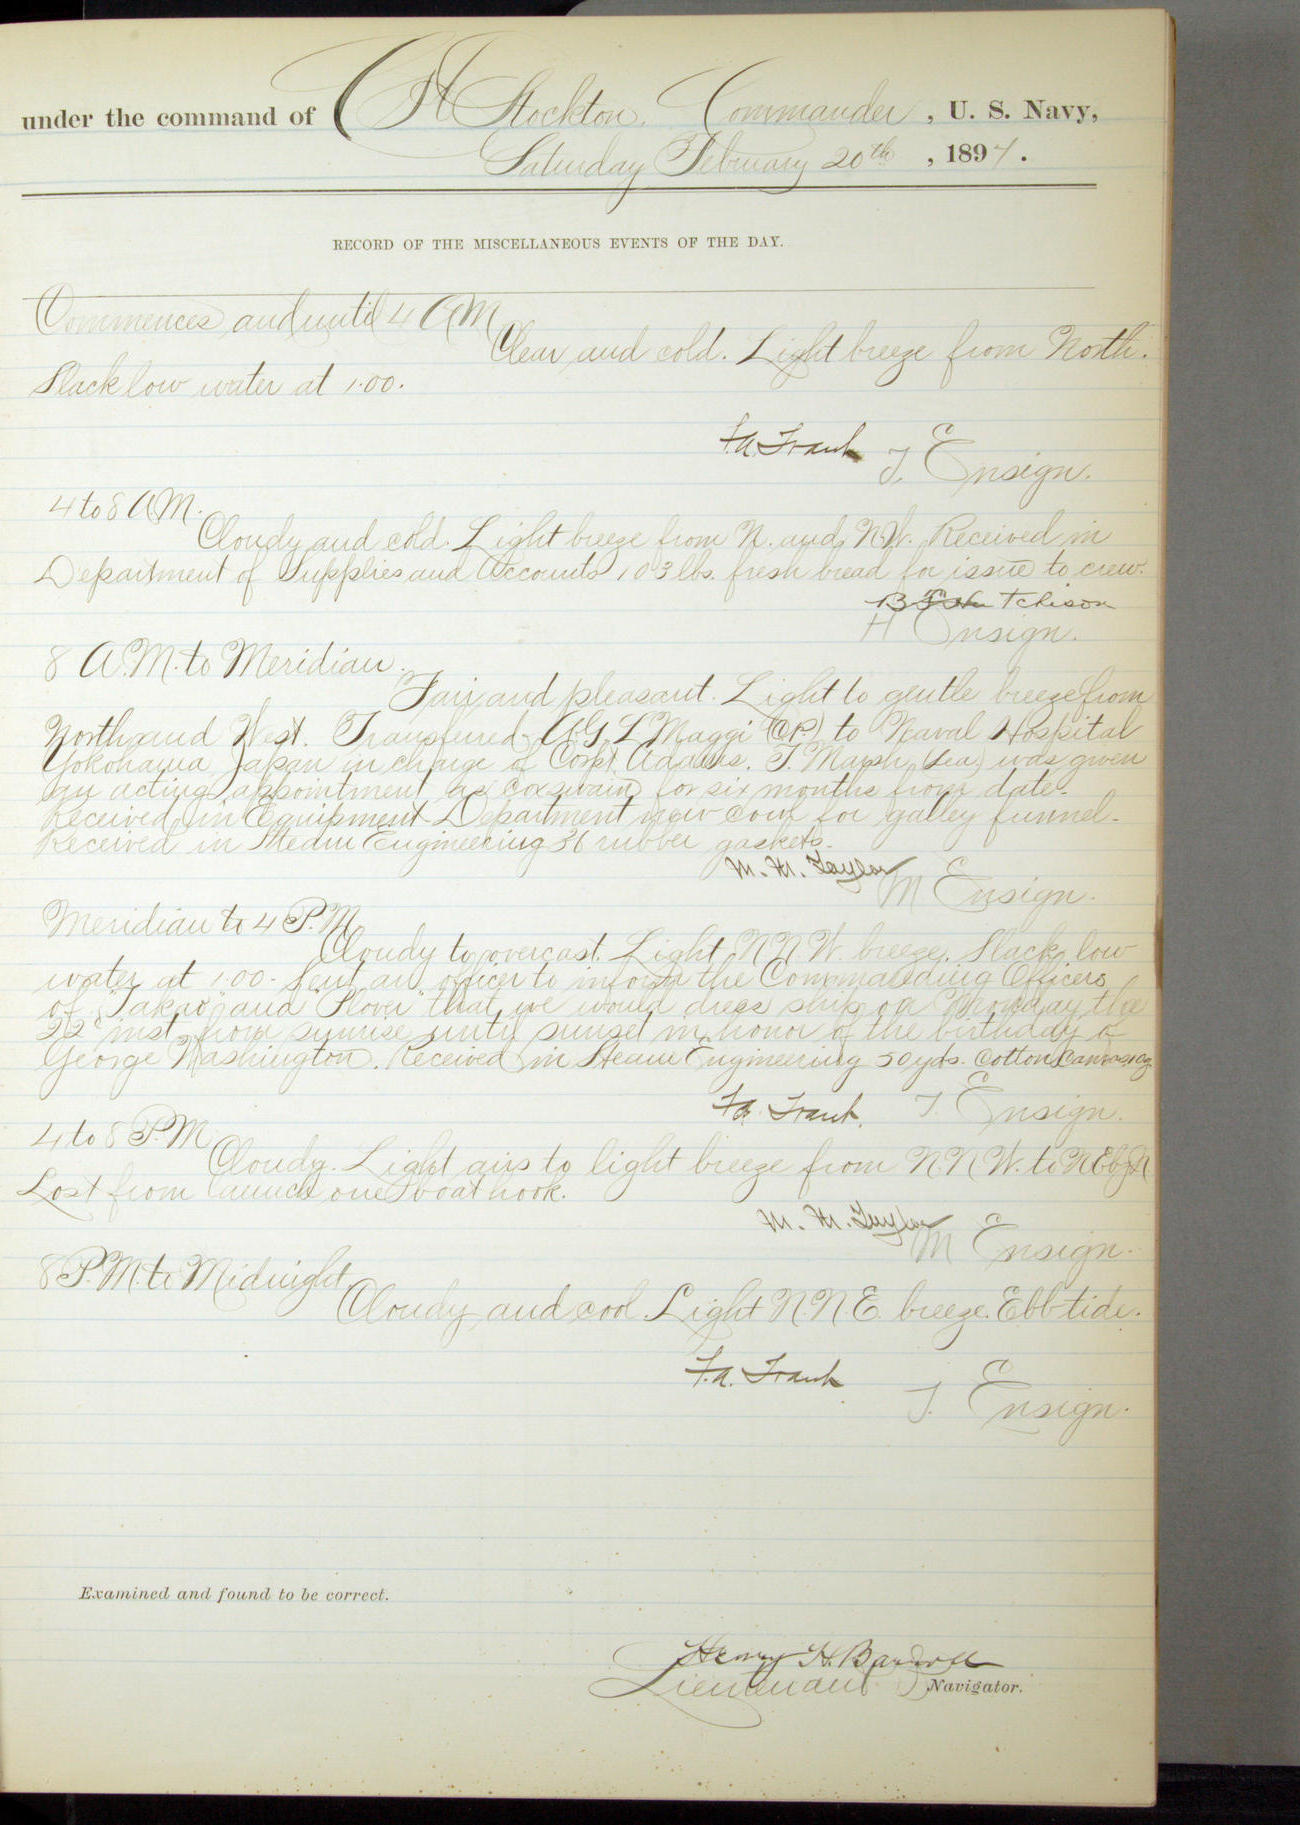 under the command of C H Stockton, Commander, U. S. Navy,
Saturday February 20th, 1897.
RECORD OF THE MISCELLANEOUS EVENTS OF THE DAY.
Commences and until 4 A M
Clear and cold. Light breeze from North.
Slack low water at 1.00.
F.A. Traut
Ensign.
4 to 8 A M.
Cloudy and cold. Light breeze from N. and N.W. Received in
Department of Supplies and Accounts 103 lbs. fresh bread for issue to crew.
B F Hutchison
Ensign.
8 A.M. to Meridian.
Fair and pleasant. Light to gentle breeze from
North and West. Transferred A G L Maggi (C.P.) to Naval Hospital
Yokohama Japan in charge of Corp'l Adams. T. Marsh (Sea) was given
an acting appointment as coxswain for six months from date.
Received in Equipment Department new cowl for galley funnel.
Received in Steam Engineering 36 rubber gaskets.
M. M. Taylor
M Ensign.
Meridian to 4 P.M.
Cloudy to overcast. Light N.N.W. breeze. Slack low
water at 1.00. Sent an officer to inform the Commanding Officers
of "Takao" and "Plover" that we would dress ship on Monday the
22d inst from sunrise until sunset in honor of the birthday of
George Washington. Received in Steam Engineering 50 yds. cotton canvas
F.A. Traut.
T. Ensign.
4 to 8 P.M
Cloudy. Light airs to light breeze from N.N.W. to N E by N
Lost from launch one boat hook.
M. M. Taylor
M Ensign.
8 P.M. to Midnight
Cloudy and cool. Light N.N.E. breeze. Ebb tide.
F.A. Traut
T. Ensign.
Examined and found to be correct.
Henry H. Barroll
Lieutenant Navigator.